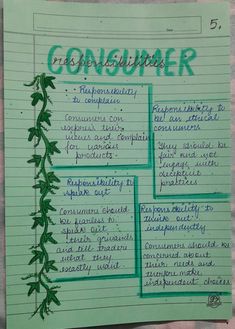 5.
CONSUMER
responsibilities
Responsibility
to complain
Consumers can
express their
views and complain
for various
products.
Responsibility to
be an ethical
consumers
They should be
fair and not
engage with
deceptive
practices
Responsibility to
speak out
Consumers should
be fearless to
speak out
their
and tell traders
what they
exactly want
Responsibility to
out
independently
Consumers should be
concerned about
their needs and
therefore make
independent choices